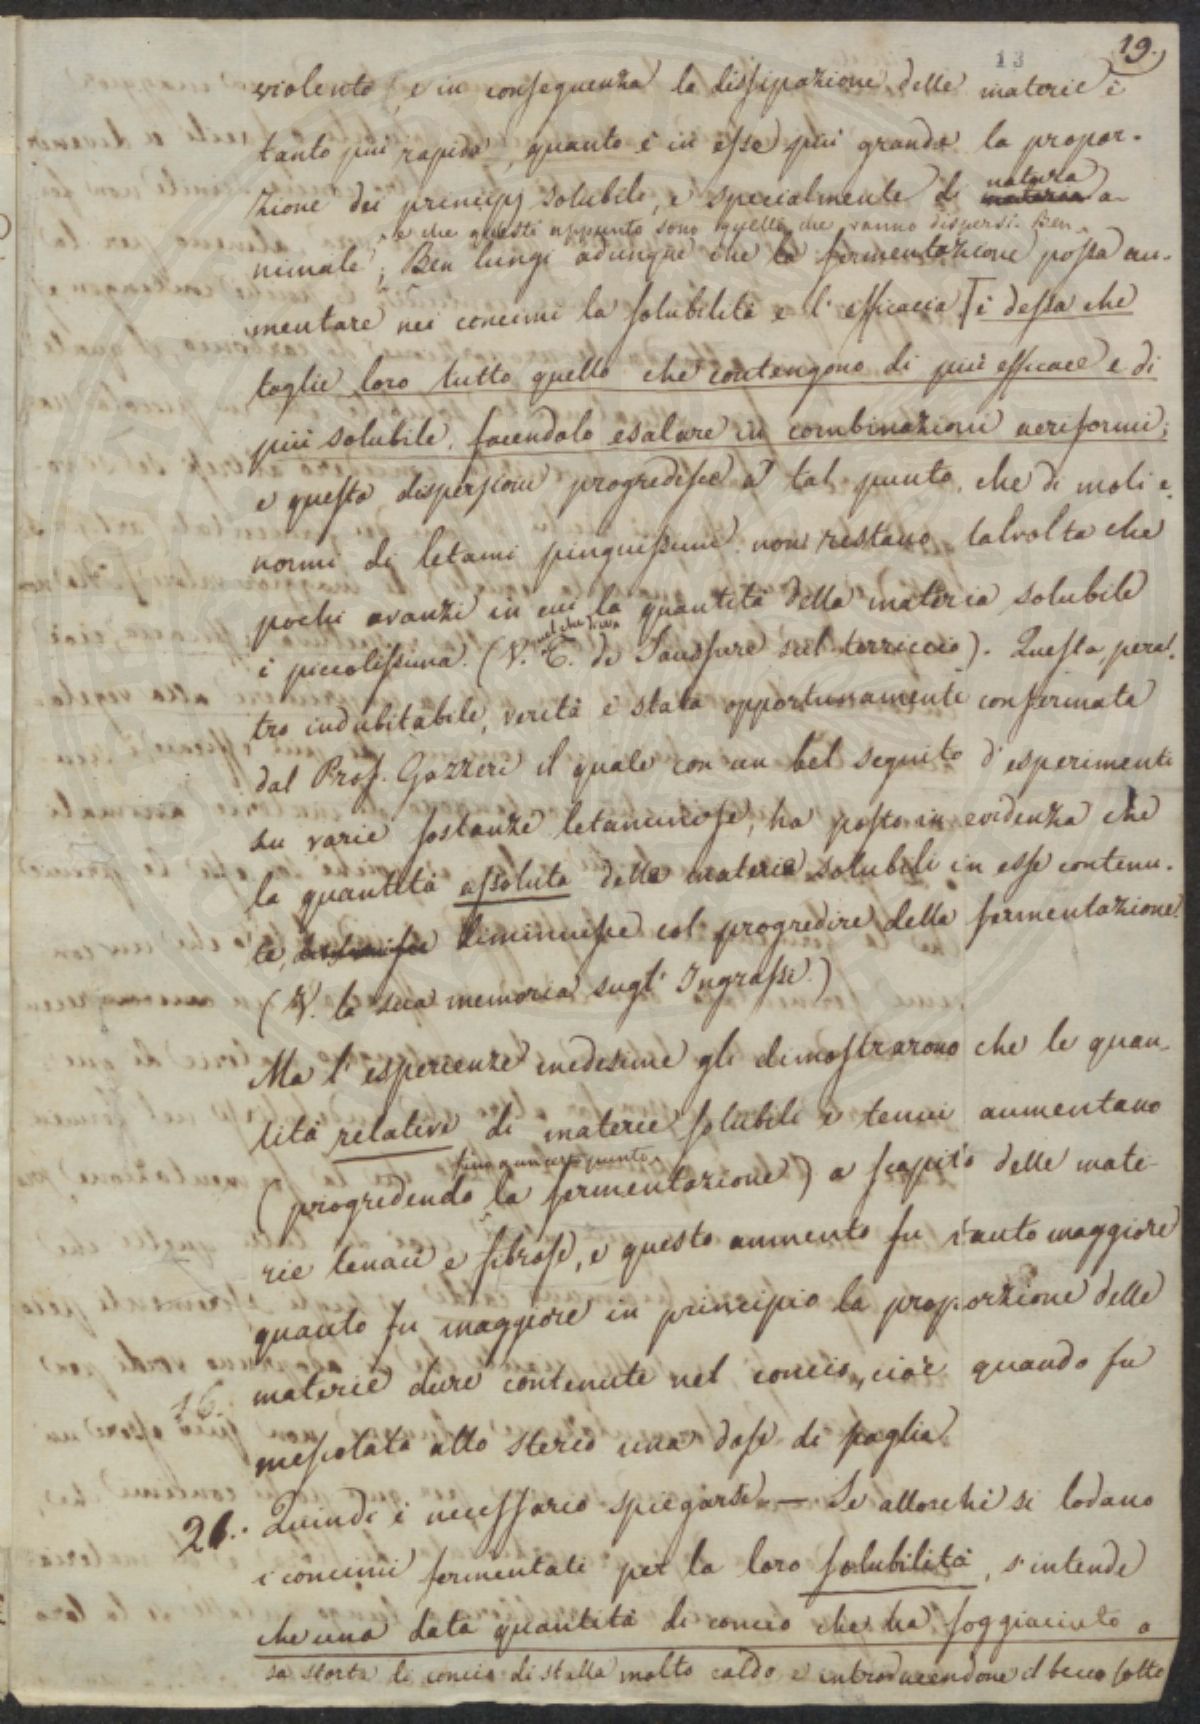 13
19.
violento, e in conseguenza la dissipazione delle materie è
tanto più rapida, quanto è in esse più grande la propor-
zione dei principj solubili, e specialmente di materia natura a-
e che questi appunto sono quelli che vanno dispersi. Ben
nimale; Ben lungi adunque che la fermentazione possa au-
mentare nei concimi la solubilità e l'efficacia, è dessa che
toglie loro tutto quello che contengono di più efficace e di
più solubile, facendolo esalare in combinazioni aeriformi;
e questa dispersione progredisce a tal punto, che di moli e-
normi di letami pinguissimi non restano talvolta che
pochi avanzi in cui la quantità della materia solubile
è piccolissima. (V. T. de Saussure sul terriccio). Questa, peral-
tro indubitabile, verità è stata opportunamente confermata
dal Prof. Gazzeri il quale con un bel seguito d'esperimenti
su varie sostanze letaminose, ha posto in evidenza che
la quantità assoluta delle materie solubili in esse contenu-
te, diminuisce col progredire della fermentazione.
(V. la sua memoria sugl'Ingrassi.)
Ma l'esperienze medesime gli dimostrarono che le quan-
tità relative di materie solubili e tenui aumentano
fino a un certo punto
(progredendo la fermentazione) a scapito delle mate-
rie tenaci e fibrose, e questo aumento fu tanto maggiore
quanto fu maggiore in principio la proporzione delle
materie dure contenute nel concio, cioè quando fu
16.
mescolata allo sterco una dose di paglia.
21. Quindi è necessario spiegarsi. — Se allorchè si lodano
i concimi fermentati per la loro solubilità, s'intende
che una data quantità di concio che ha soggiaciuto a
sa storta di concio di stalla molto caldo e introducendone il becco sotto